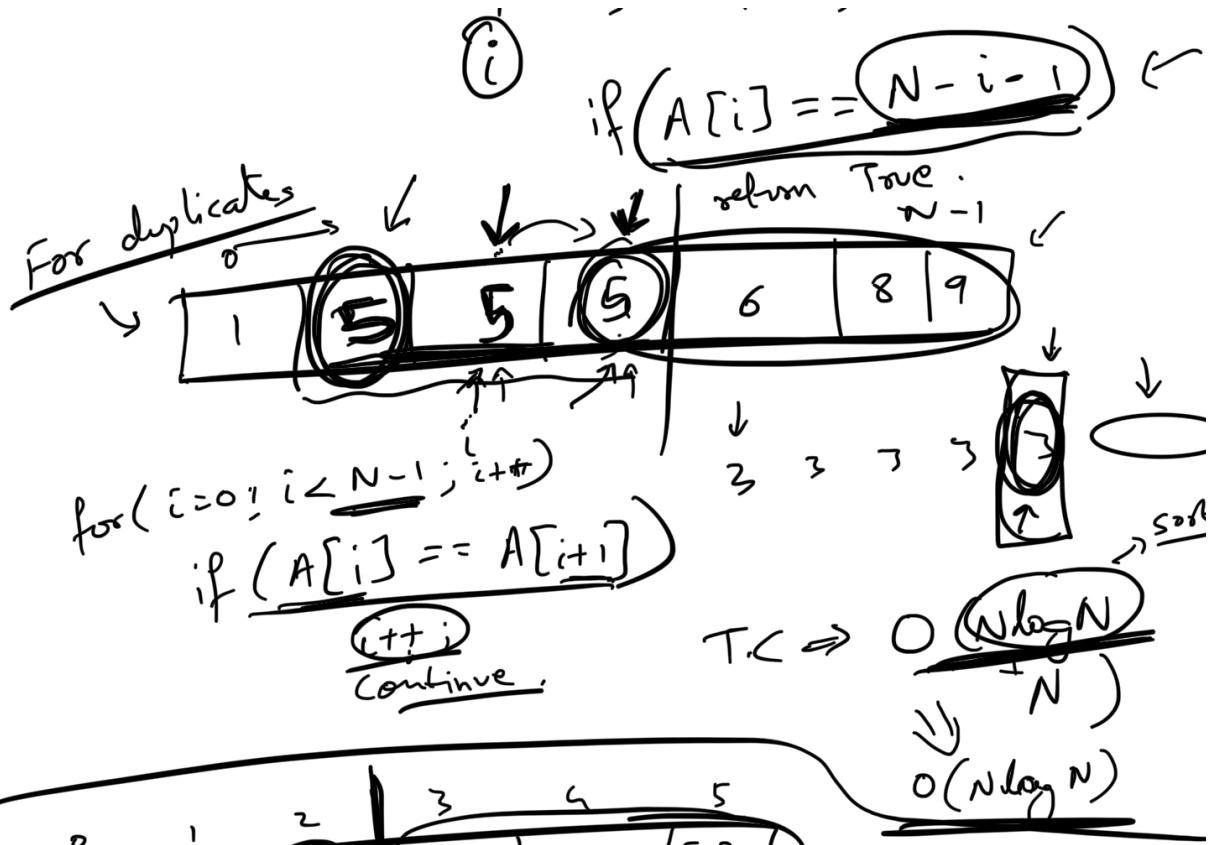 i
if (A[i] == N - i - 1)
return True.
For duplicates
0
N-1
1 5 5 5 6 8 9
i
3 3 3 3 3
for( i=0; i< N-1; i++)
if ( A[i] == A[i+1])
i++;
continue.
sort
T.C ⇒ O (NlogN
+
N )
O(NlogN)
1 2 3 4 5